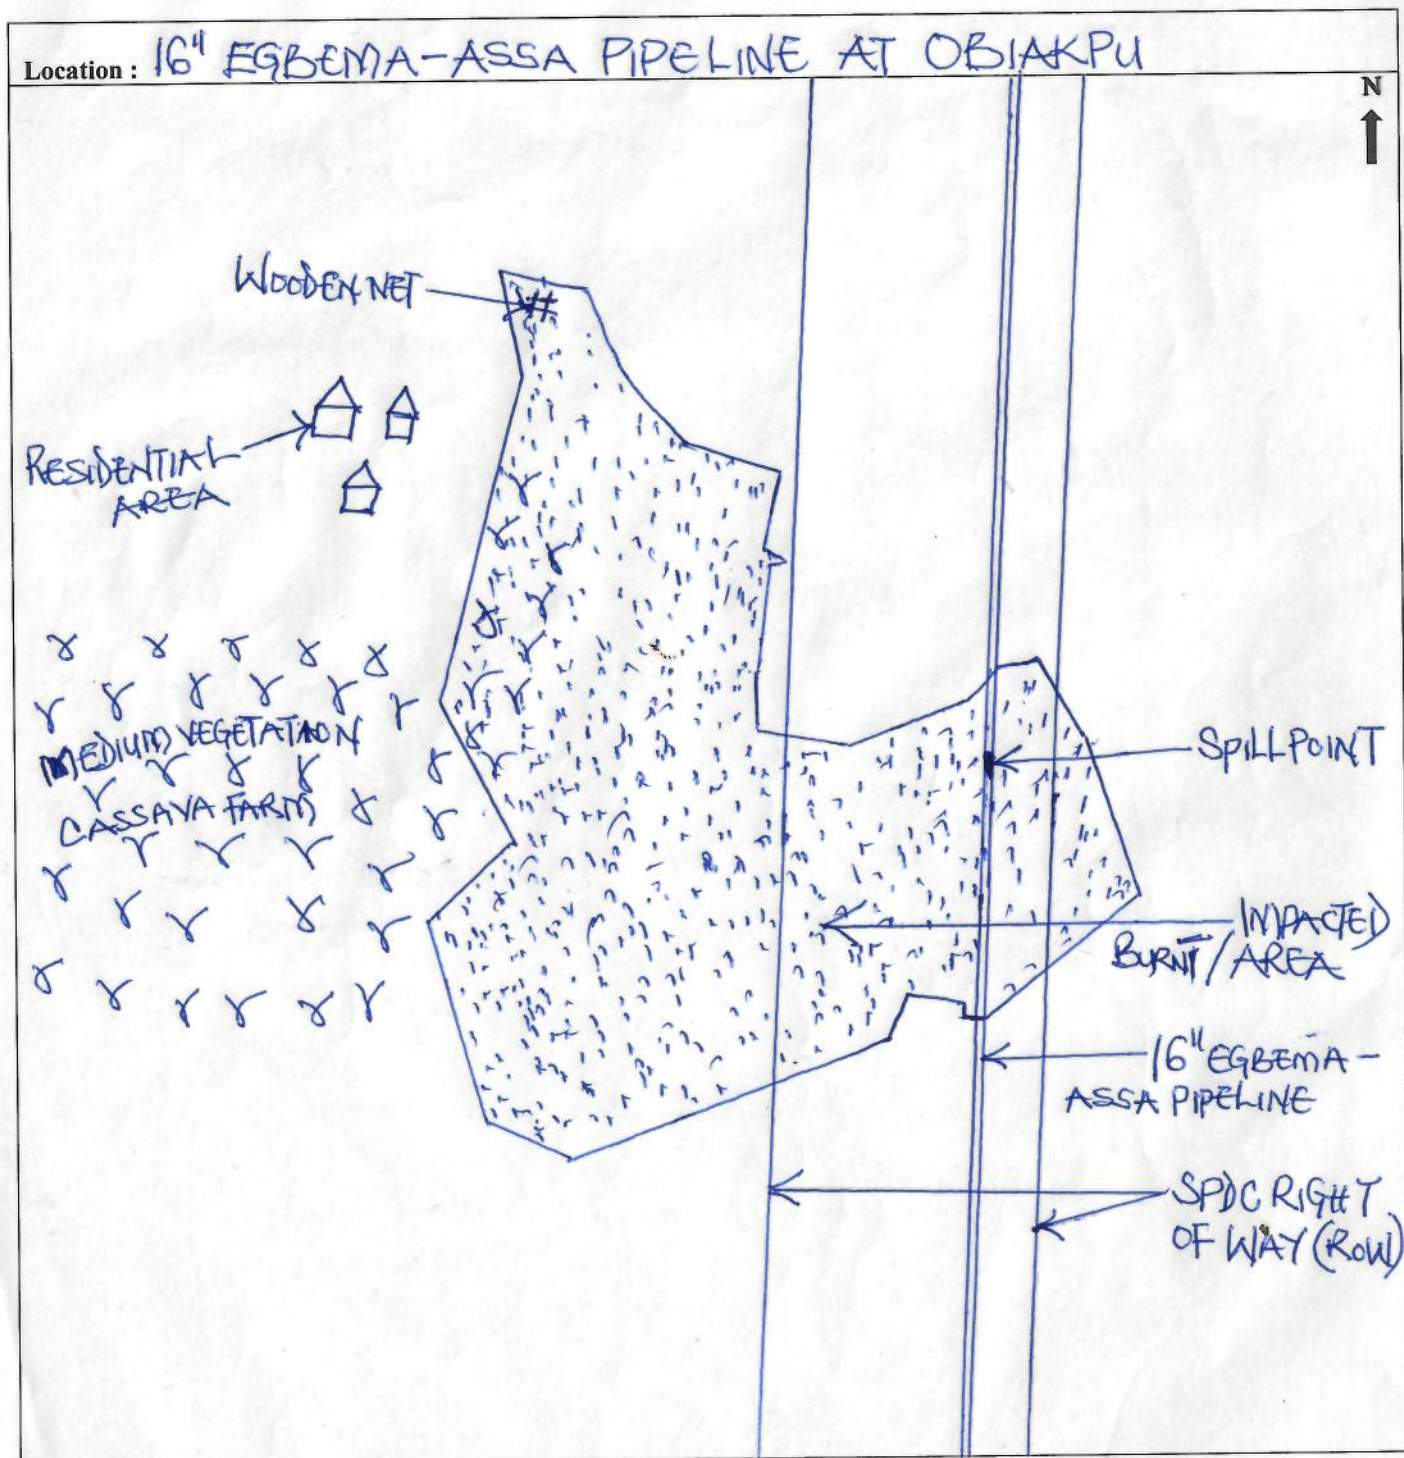 Location : 16" EGBEMA-ASSA PIPELINE AT OBIAKPU
N
WOODEN NET
RESIDENTIAL
AREA
MEDIUM VEGETATION
CASSAVA FARM
SPILLPOINT
IMPACTED
BURNT/AREA
16" EGBEMA-
ASSA PIPELINE
SPDC RIGHT
OF WAY (ROW)